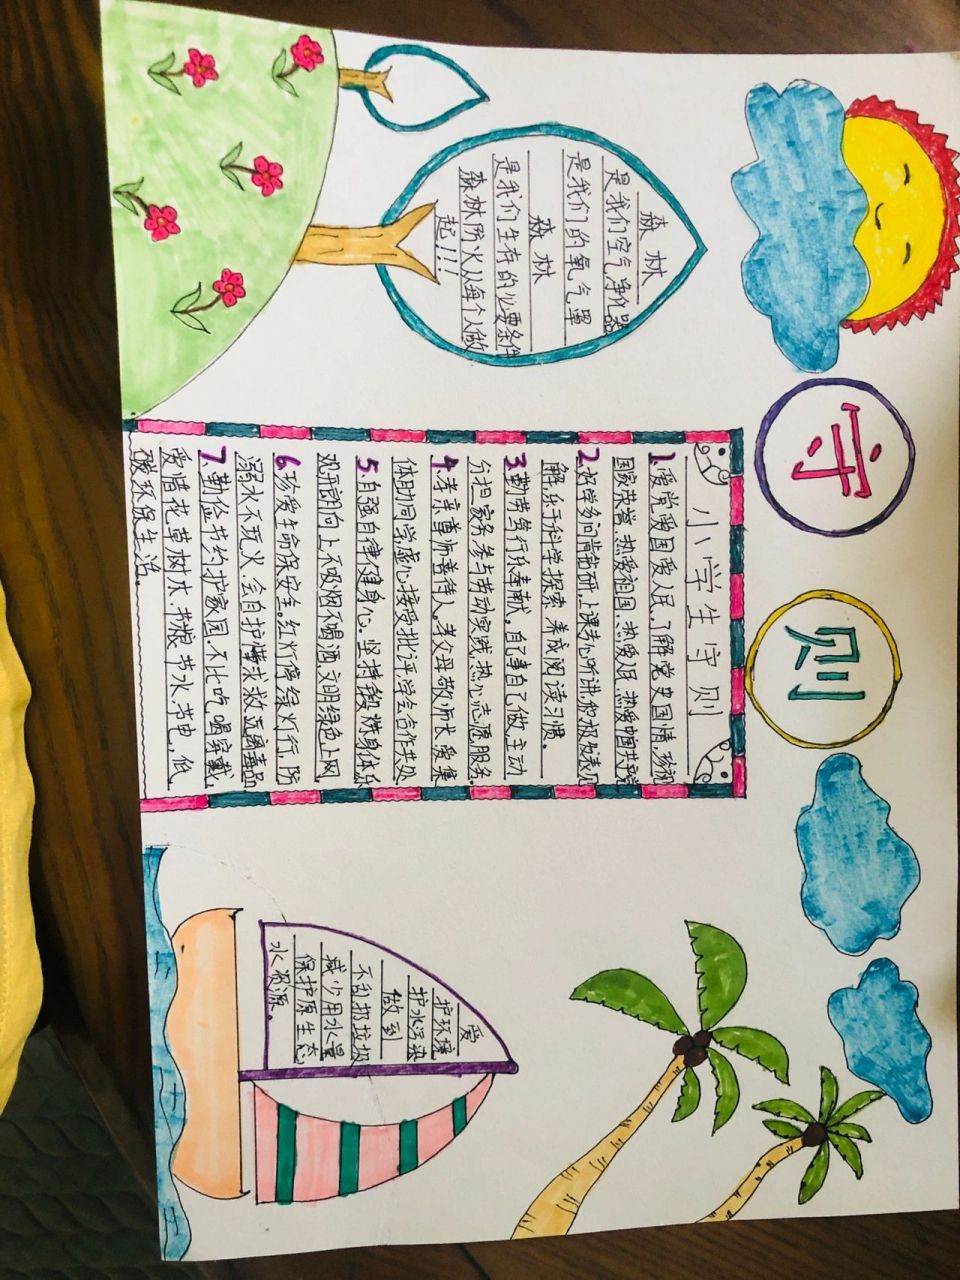 守则
森林
是我们空气净化器
是我们的氧气罩
森林
是我们生存的必要条件
森林防火从每个人做
起!!!
小学生守则
1.爱党爱国爱人民。了解党史国情,珍视
国家荣誉,热爱祖国,热爱人民,热爱中国共产党
2.好学多问肯钻研,上课专心听讲,积极发表见
解,乐于科学探索,养成阅读习惯。
3.勤劳笃行乐奉献。自己事自己做,主动
分担家务,参与劳动实践,热心志愿服务。
4.孝亲尊师善待人。孝父母敬师长,爱集
体助同学,虚心接受批评,学会合作共处
5.自强自律健身心。坚持锻炼身体,乐
观开朗向上,不吸烟不喝酒,文明绿色上网
6.珍爱生命保安全。红灯停绿灯行,防
溺水不玩火,会自护懂求救,远离毒品
7.勤俭节约护家园,不比吃喝穿戴,
爱惜花草树木,节粮节水节电,低
碳环保生活。
爱
护环境
护水污染
做到
不乱扔垃圾
减少用水量
保护原生态
水资源。